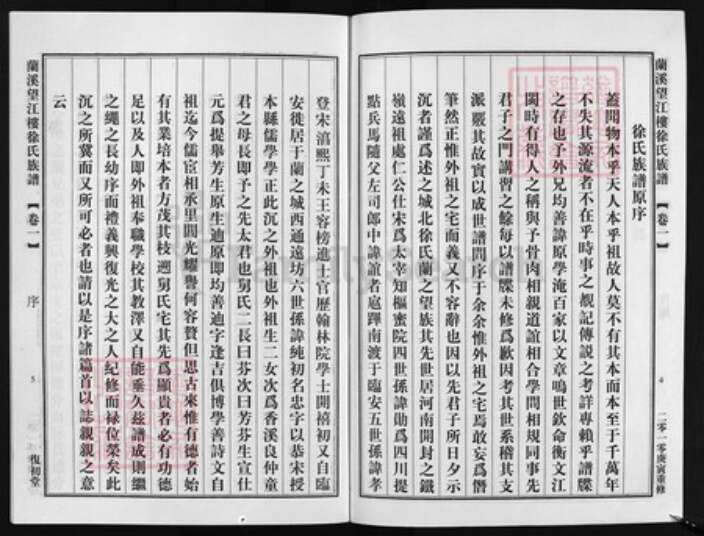 蘭溪望江樓徐氏族譜
【卷一】
4
二零一零庚寅重修
徐氏族譜原序
蓋聞物本乎天人本乎祖故人莫不有其本而本至于千萬年
不失其源流者不在乎時事之覩記傳説之考詳專賴乎譜牒
之存也予外兄均善諱原學淹百家以文章鳴世欽命衡文江
閩時有得人之稱與予骨肉相親道誼相合學問相規同事先
君子之門講習之餘每以譜牒未修爲歉因考其世系稽其支
派嚴其故實以成世譜問序于余余惟外祖之宅焉敢妄爲僭
筆然正惟外祖之宅而義又不容辭也因以先君子所日夕示
沉者謹爲述之城北徐氏蘭之望族其先世居河南開封之鐵
嶺遠祖處仁公仕宋爲太宰知樞密院四世孫諱勛爲四川提
點兵馬隨父左司郎中諱誼者扈蹕南渡于臨安五世孫諱孝
登宋淳熙丁未王容榜進士官歷翰林院學士開禧初又自臨
安徙居于蘭之城西通遠坊六世孫諱純初名忠字以恭宋授
本縣儒學學正此沉之外祖也外祖生二女次爲香溪良仲童
君之母長即予之先太君也舅氏二長曰芬次曰芳芬生宣仕
元爲提舉芳生原生迪原即均善迪字逢吉俱博學善詩文自
祖迄今儒宦相承里閭光耀譽何容贊但思古來惟有德者始
有其業培本者方茂其枝遡舅氏宅其先爲顯貴者必有功德
足以及人即外祖奉職學校其教澤又自能垂久兹譜成則繼
之繩之長幼序而禮義興復光之大之人紀修而禄位榮矣此
沉之所冀而又所可必者也請以是序諸篇首以誌親親之意
云
蘭溪望江樓徐氏族譜
【卷一】
序
5
復初堂